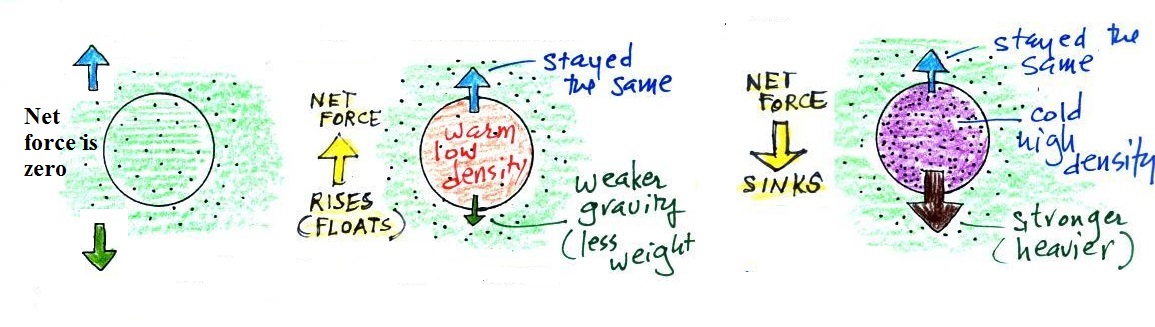 Net
force is
zero
NET
FORCE
RISES
(FLOATS)
stayed
the same
warm
low
density
weaker
gravity
(less
weight
NET
FORCE
SINKS
stayed the
same
cold
high
density
stronger
(heavier)